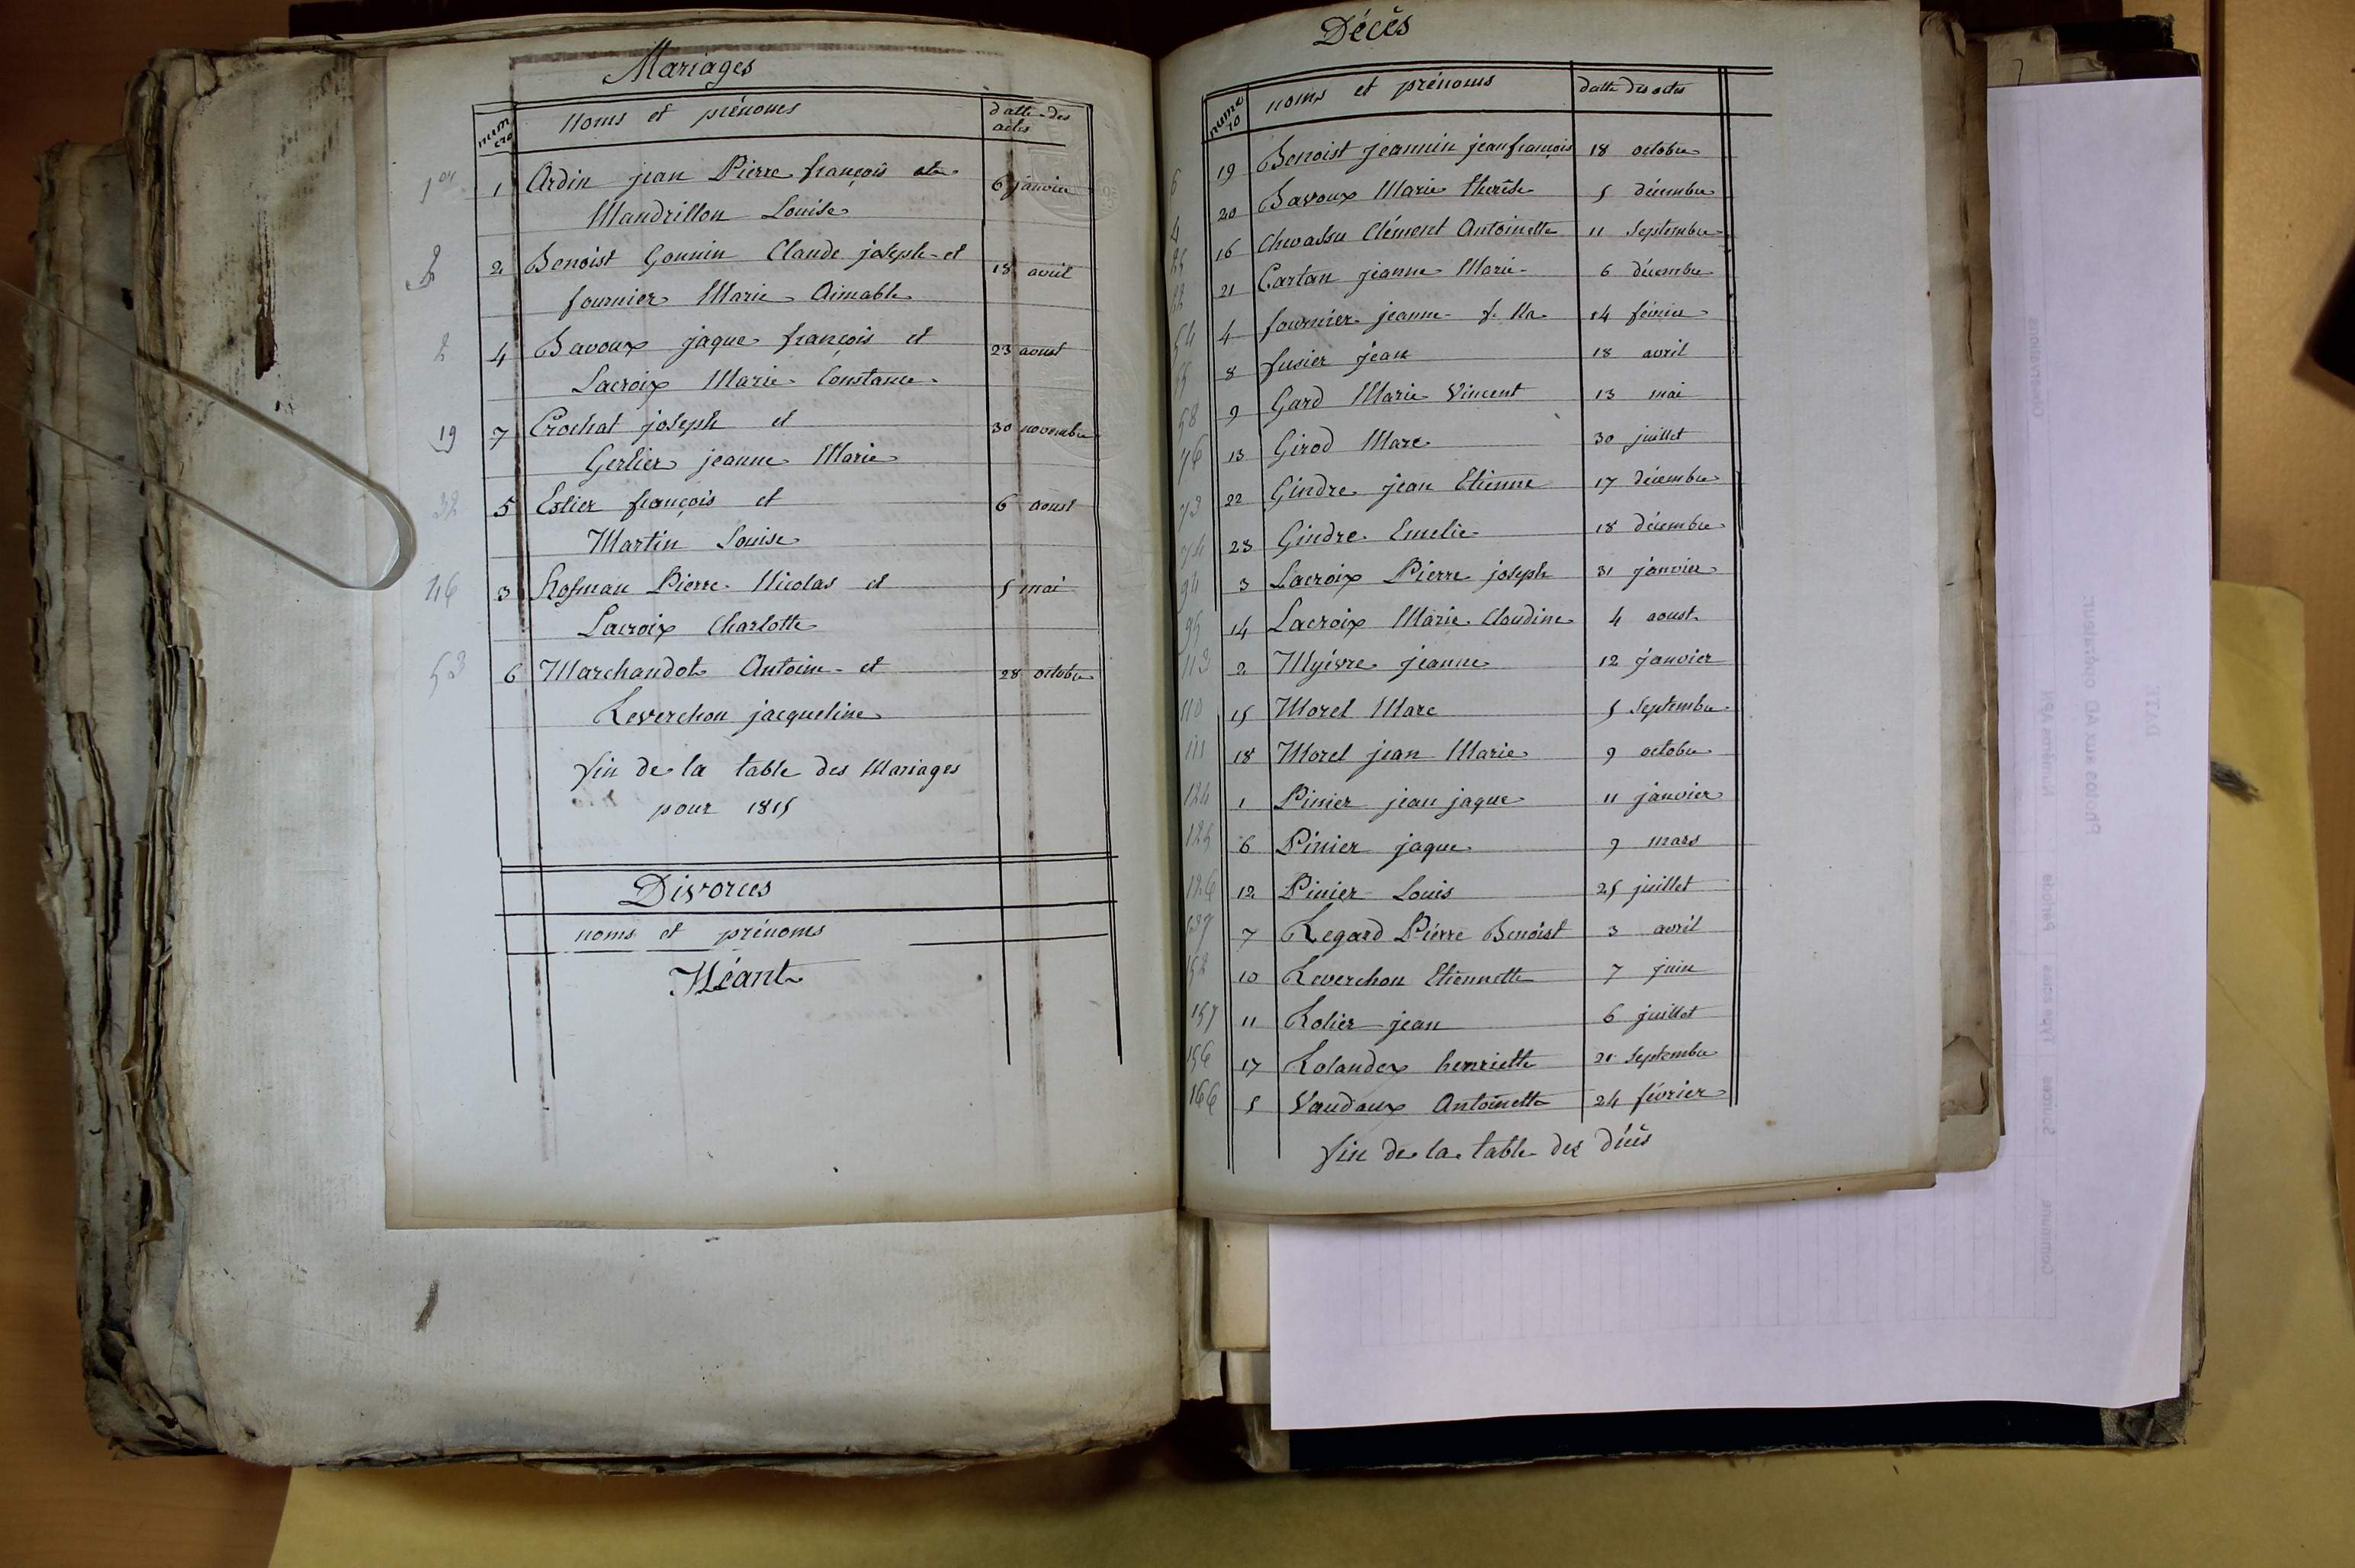 Mariages
numero noms et prénoms datte des actes
1er 1 Ardin jean Pierre françois et 6 janvier
Mandrillon Louise
2 2 Benoist Gonnin Claude joseph et 18 avril
fournier Marie Aimable
2 4 Bavoux jaque françois et 23 aoust
Lacroix Marie Constance
19 7 Crochat joseph et 30 novembre
Gerlier jeanne Marie
32 5 Estier françois et 6 aoust
Martin Louise
46 3 Hofman Pierre Nicolas et 5 mai
Lacroix Charlotte
53 6 Marchandot Antoine et 28 octobre
Reverchon jacqueline
fin de la table des Mariages
pour 1815
Divorces
noms et prénoms
Néant
Décès
numero noms et prénoms datte des actes
6 19 Benoist jeannin jean françois 18 octobre
4 20 Bavoux Marie therèse 5 décembre
25 16 Chevassu Clément Antoinette 11 Septembre
22 21 Cartan jeanne Marie 6 décembre
54 4 fournier jeanne f. 14 février
55 8 fusier jean 18 avril
58 9 Gard Marie Vincent 13 mai
76 13 Girod Marc 30 juillet
73 22 Gindre jean Etienne 17 décembre
74 23 Gindre Emelie 18 décembre
94 3 Lacroix Pierre joseph 31 janvier
95 14 Lacroix Marie Claudine 4 aoust
113 2 Myèvre jeanne 12 janvier
110 15 Morel Marc 5 Septembre
111 18 Morel jean Marie 9 octobre
124 1 Pinier jean jaque 11 janvier
125 6 Pinier jaque 9 mars
126 12 Pinier Louis 25 juillet
137 7 Regard Pierre Benoist 3 avril
152 10 Reverchon Etiennette 7 juin
157 11 Rolier jean 6 juillet
156 17 Rolandex henriette 21 Septembre
166 5 Vaudaux Antoinette 24 février
fin de la table des décès